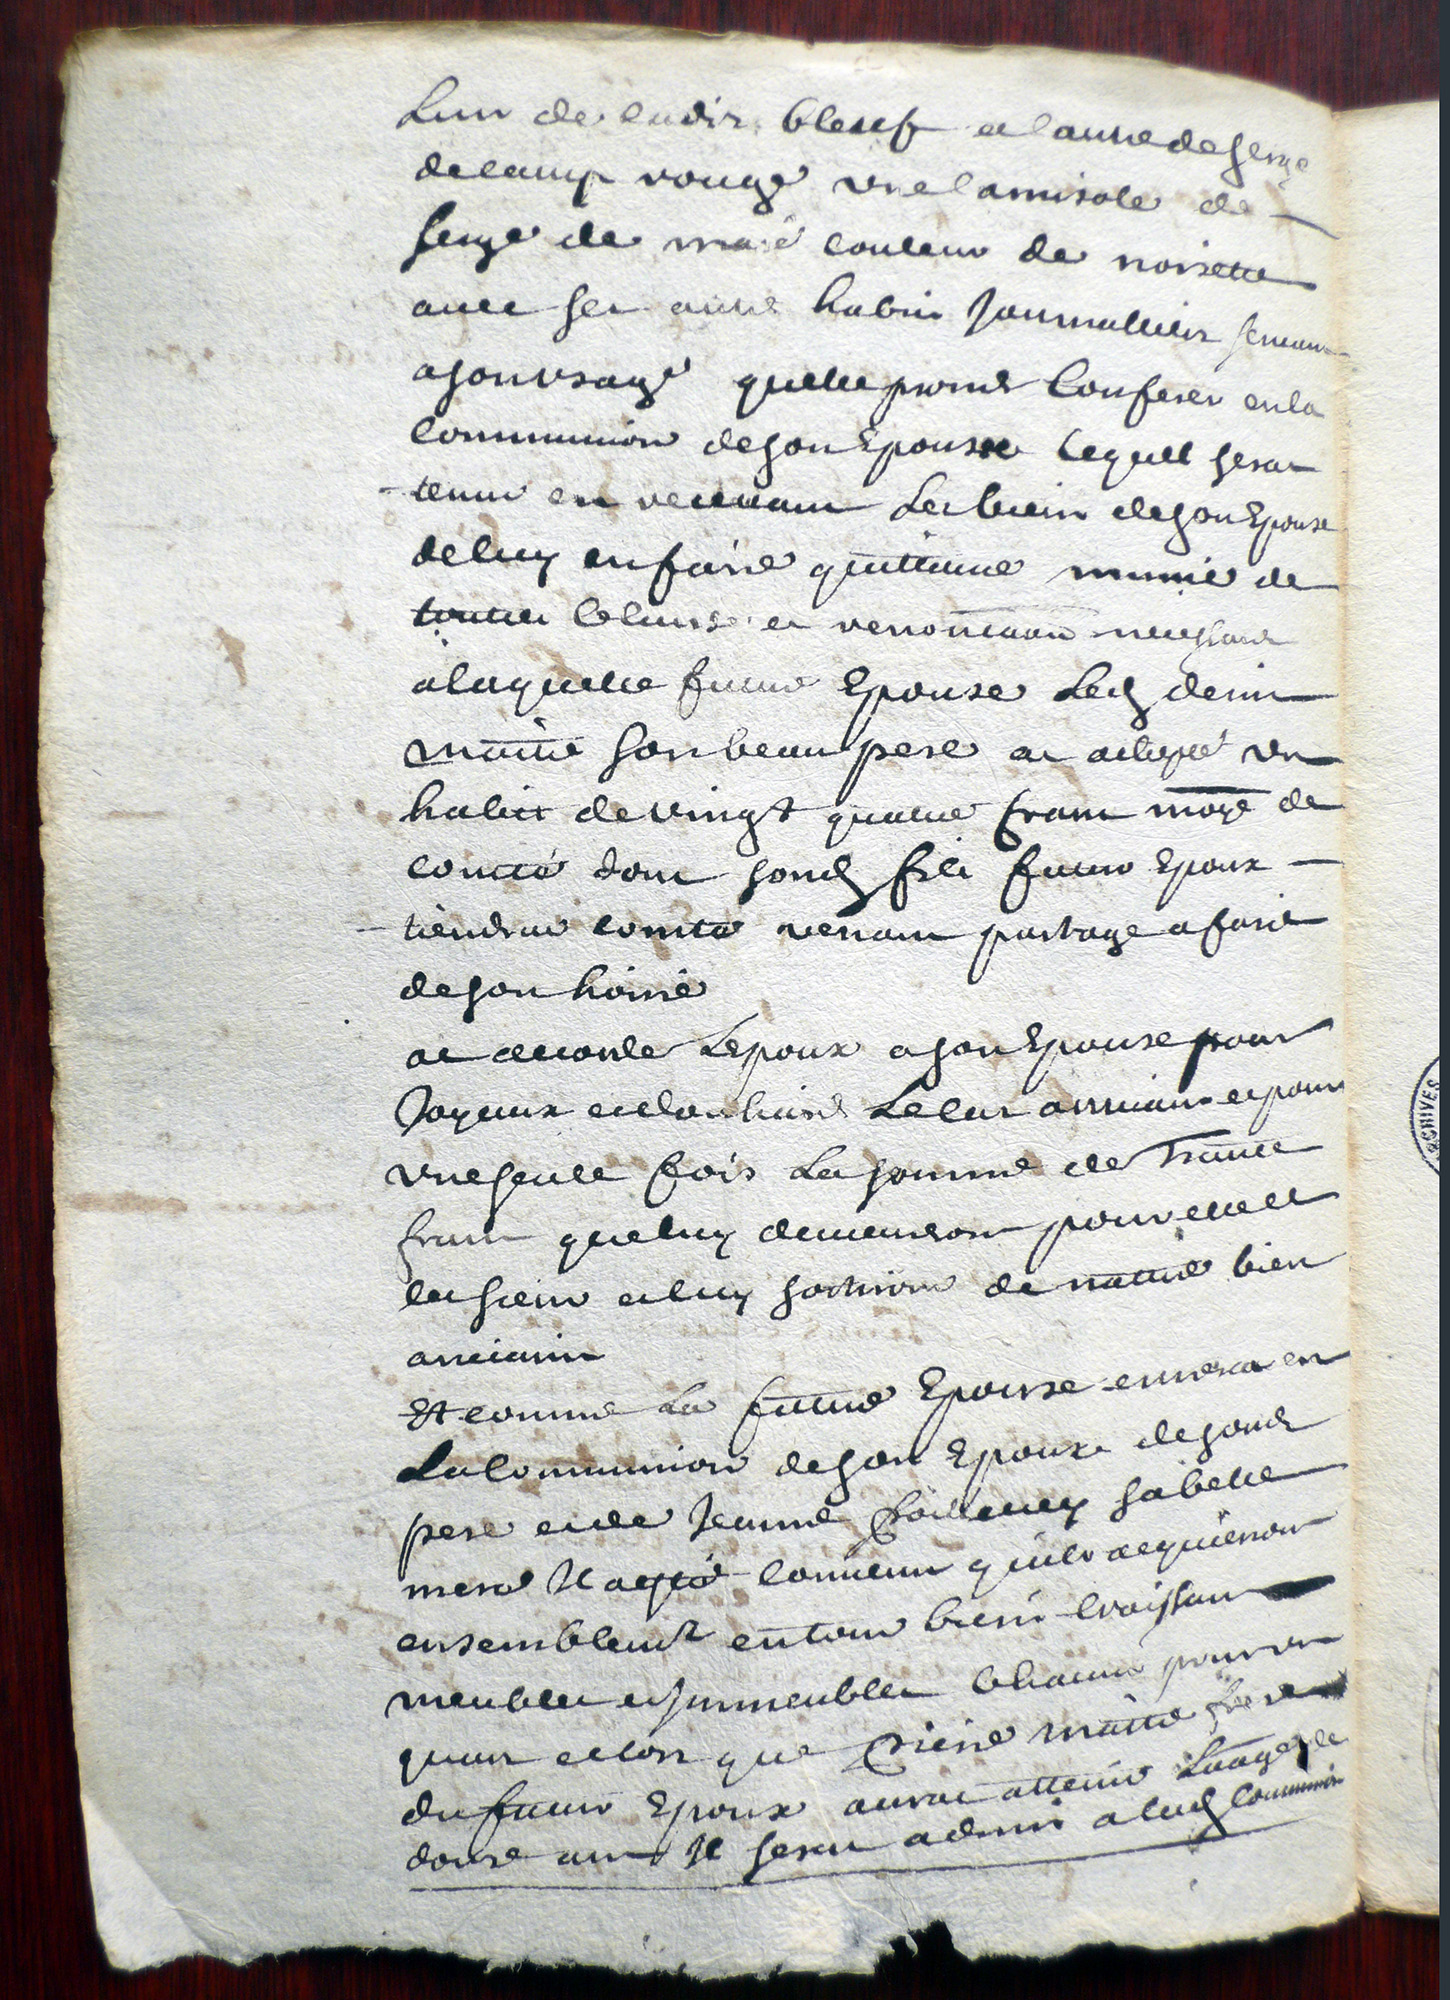 Lun de cadix bleuf et lautre de serge
de camp rouge une camisole de
serge de maié couleur de noisette
avec ses autre habis Journalliers servans
a son usage quelle promet conferer en la
communion de son Epoux lequell sera
tenu en recevant les biens de son Epouse
de luy en faire quittance munie de
toutes clause et renonciaõn necessaire
a laquelle future Epouse Led denis
maitre son beau pere at achepté un
habit de vingt quatre franc moñe de
comté dont sond fils futur Epoux
tiendrat comte venant partage a faire
de son hoirie
at accorde Lepoux a son Epouse pour
Joyaux et douhaire Le cas arrivant et pour
une seule fois La somme de Trante
franc que luy demeuront pour elle et
les siens et luy sortiront de nature bien
anciains
Et comme La future Epouse entrera en
La Communion de son Epoux de sond
pere et de Jeanne sabelle
mere Il a esté convenu quils acquieront
ensemblemt en tous biens croissans
meubles et Immeubles chacuns pour un
quart et lors que Pierre maitre frere
du futur Epoux aurat atteint Laage de
douse ans Il serat admis a lad Communion
ARCHIVES